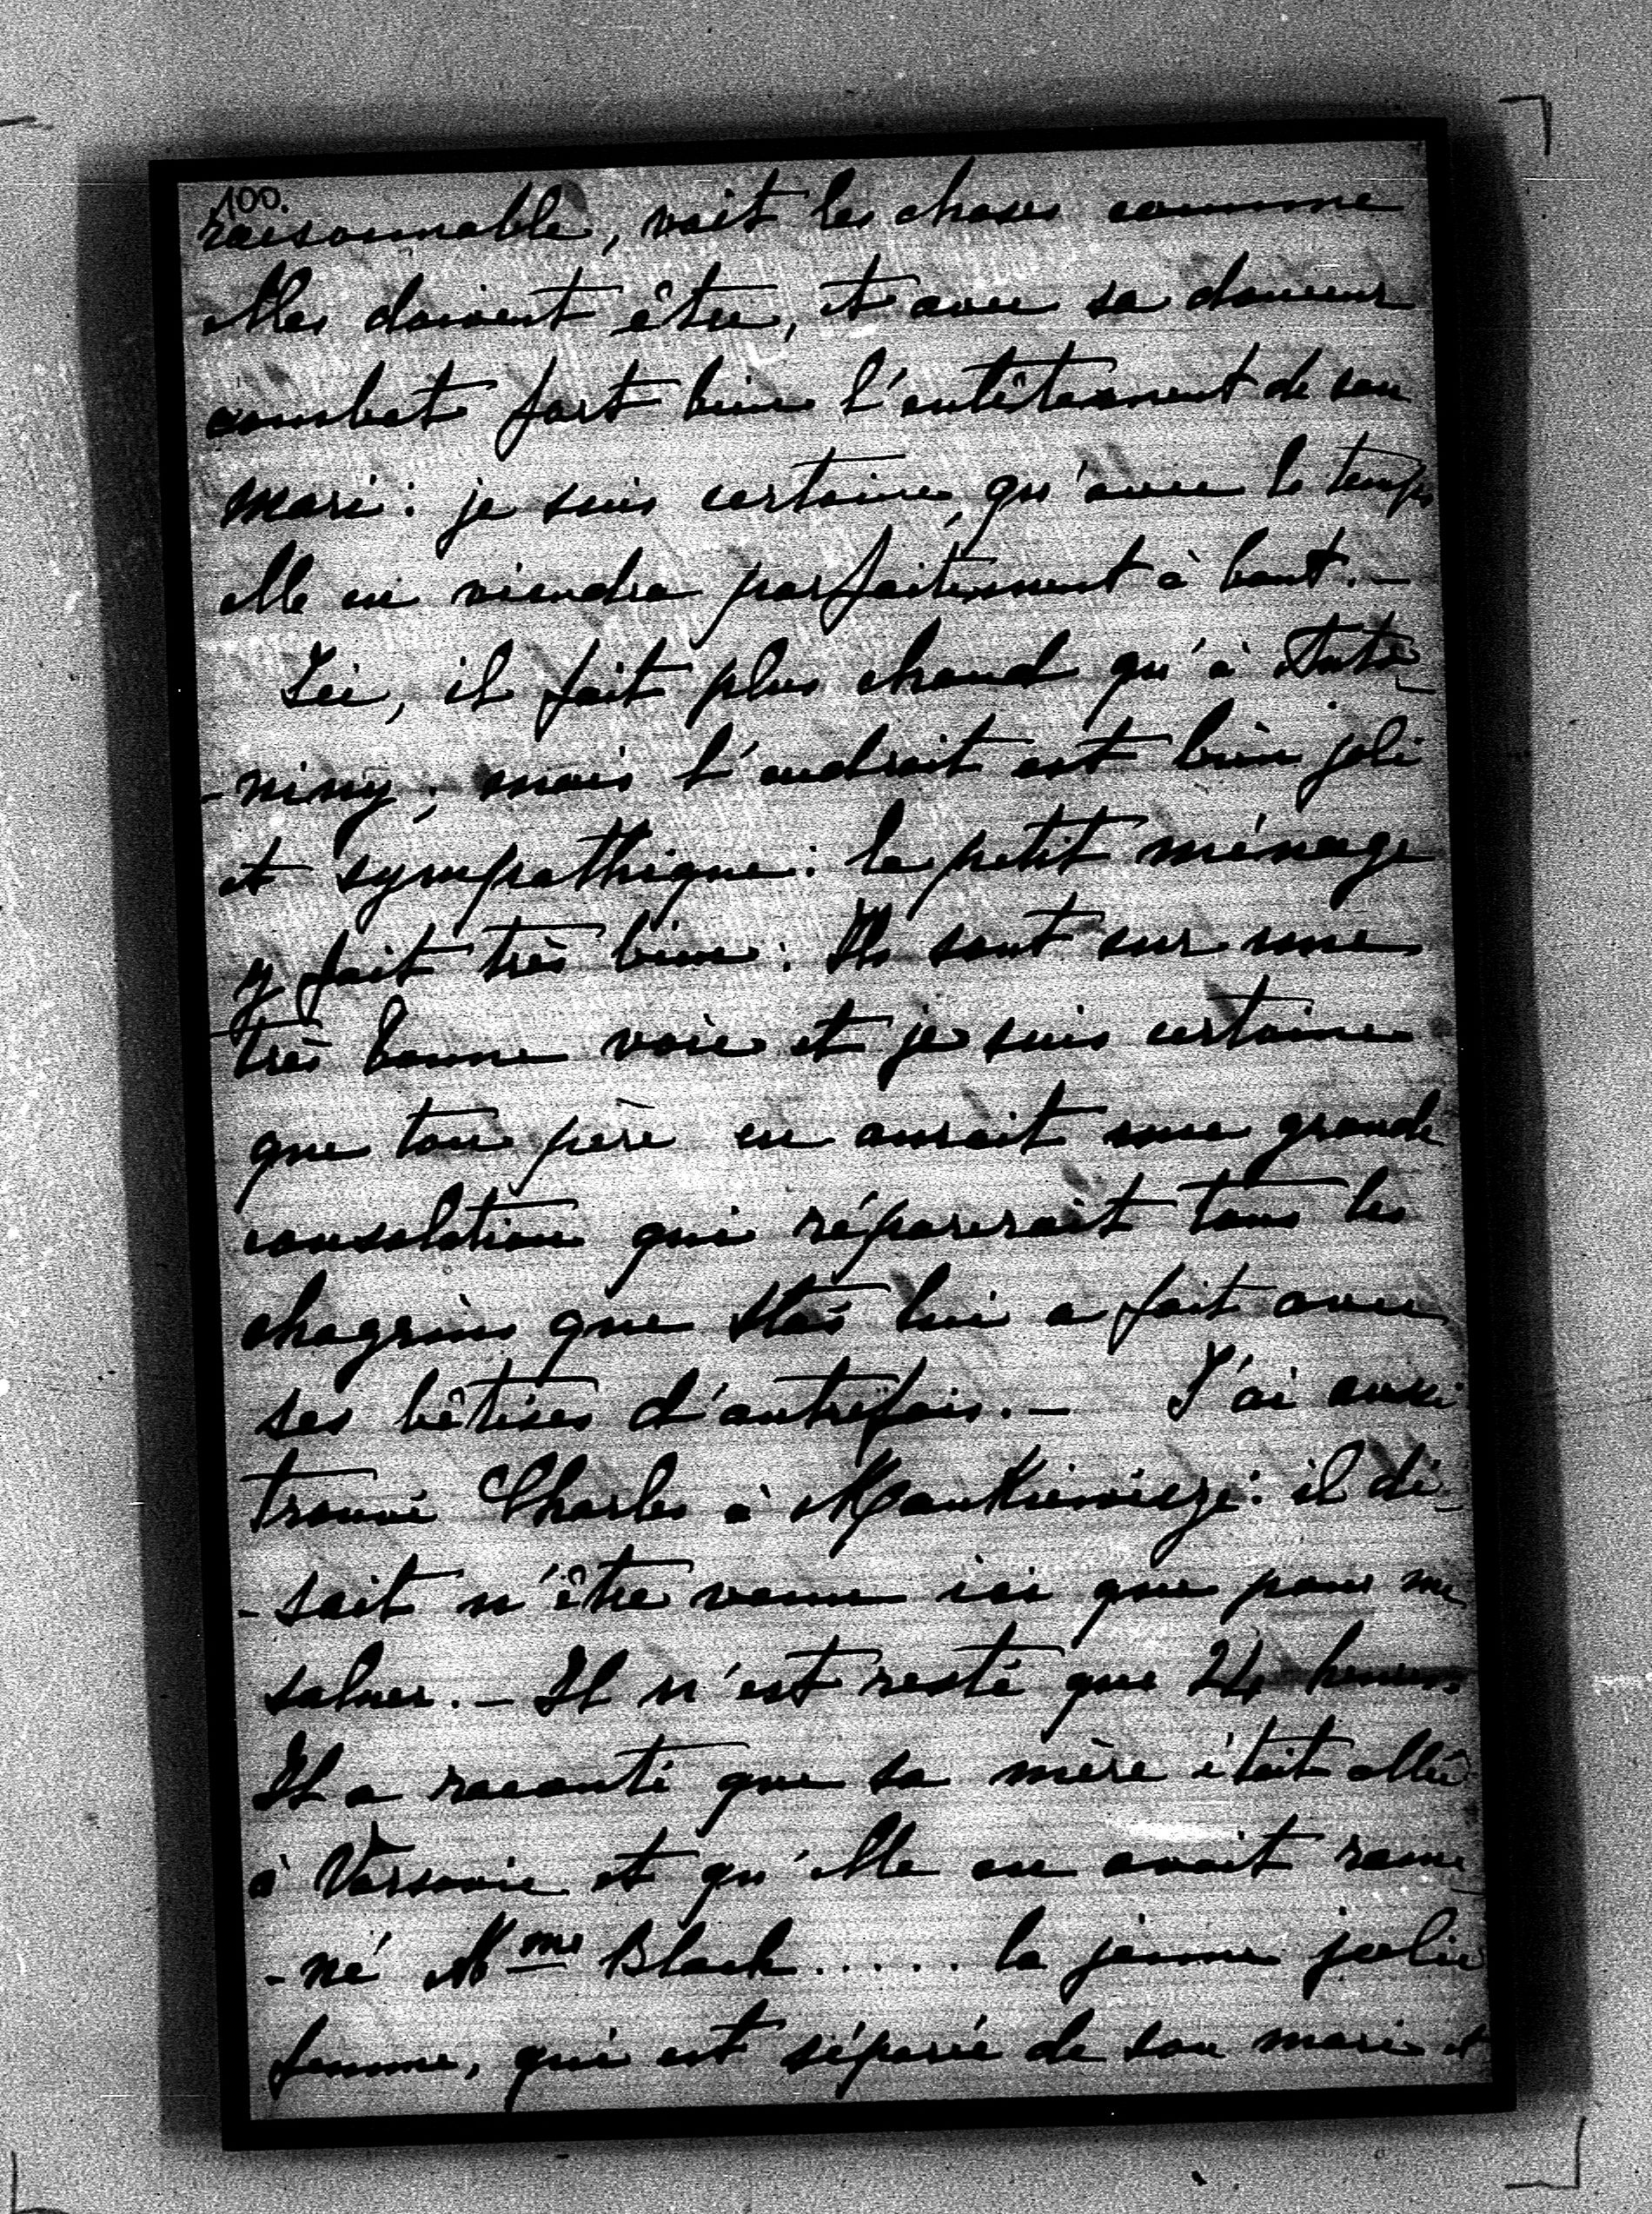 100.
raisonnable, voit les choses comme
elles doivent être, et avec sa douceur
combat fort bien l'entêtement de son
mari: je suis certaine, qu'avec le temps
elle en viendra parfaitement à bout.—
Ici, il fait plus chaud qu'à Anto-
-niny; mais l'endroit est bien joli
et sympathique: le petit ménage
y fait très bien. Ils sont sur une
très bonne voie et je suis certaine
que ton père en aurait une grande
consolation qui réparerait tous les
chagrins que Staś lui a fait avec
ses bêtises d'autrefois.— J'ai aussi
trouvé Charles à Mańkiewicze: il di-
-sait n'être venu ici que pour me
saluer.— Il n'est resté que 24 heures.
Il a raconté que sa mère était allée
à Varsovie et qu'elle en avait rame-
-né Mme Black..... la jeune jolie
femme, qui est séparée de son mari et